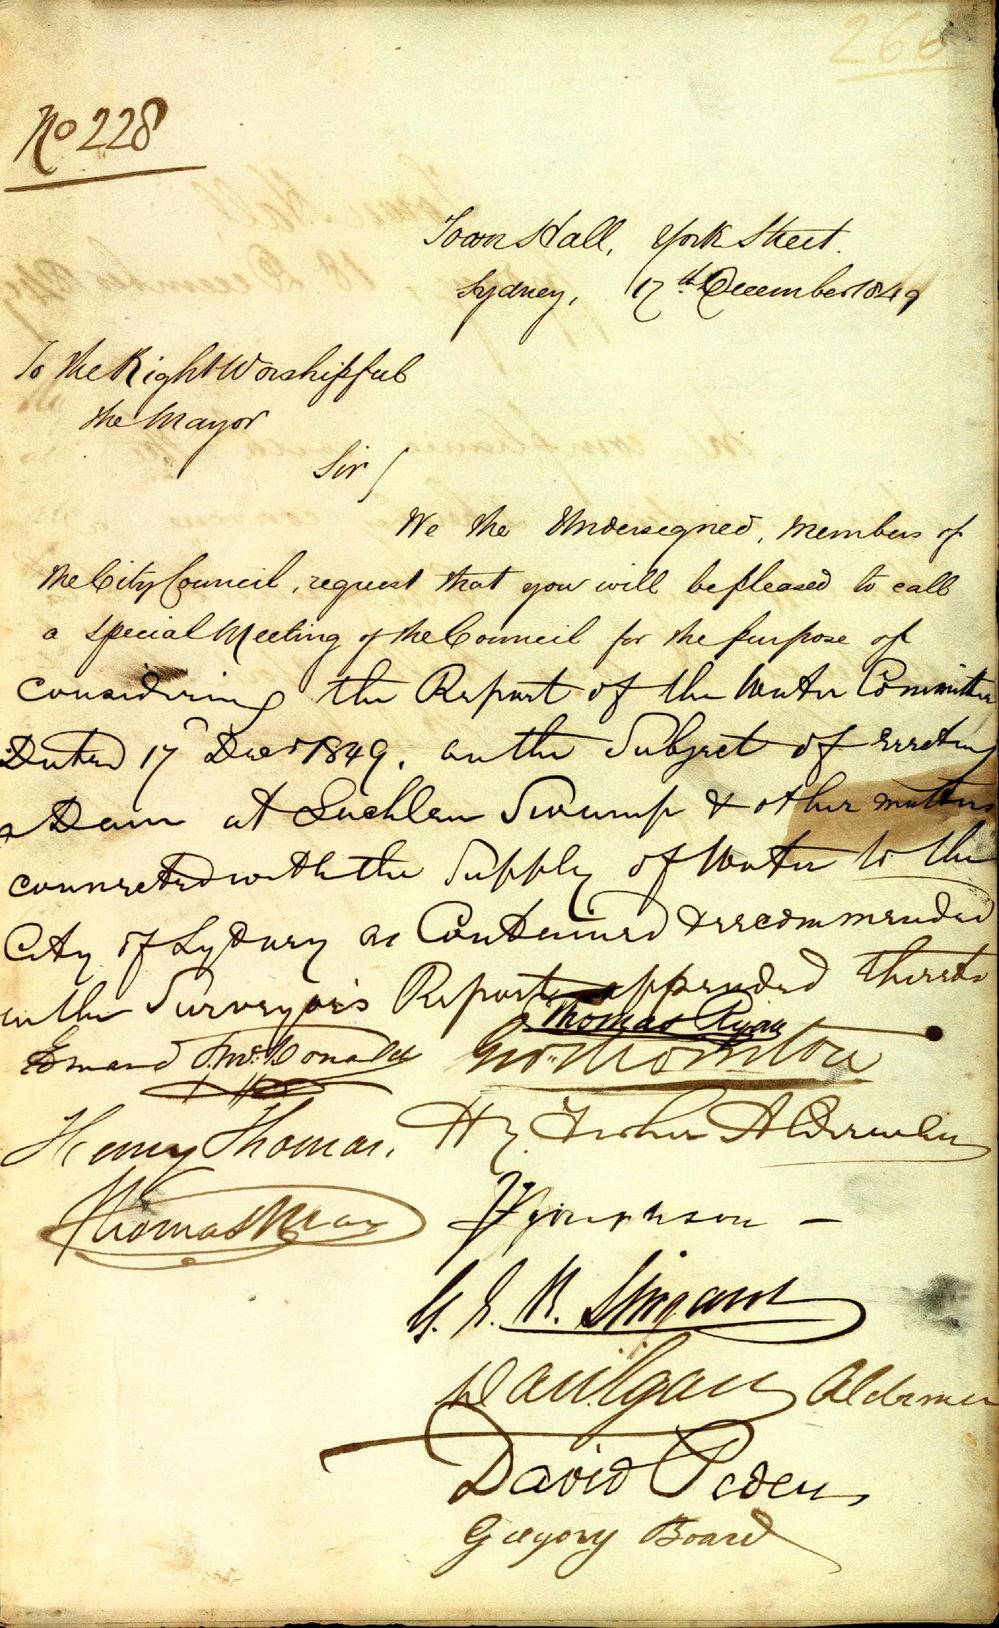 266
No 228
Town Hall, York Street.
Sydney, 17th December 1849
To the Right Worshipful
the Mayor
Sir
We the Undersigned, Members of
the City Council, request that you will be pleased to call
a Special Meeting of the Council for the purpose of
considering the Report of the Water Committee
Dated 17 Decr 1849. on the Subject of Erecting
a Dam at Lachlan Swamp & other matters
connected with the Supply of Water to the
City of Sydney as Contained & recommended
in the Surveyors Report appended thereto
Thomas Ryan
Edward McDonald Geo. Thornton
Henry Thomas. Hy Fisher Alderman
Thomas
G. E. N.
Danl Egan Alderman
David Peden
Gregory Board